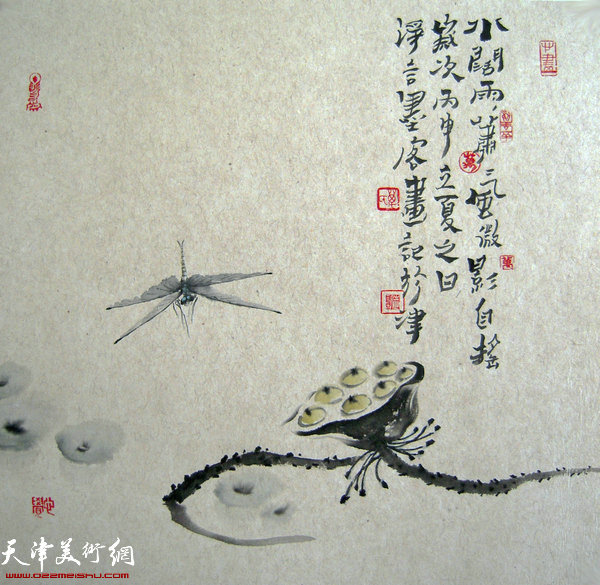 水闊雨瀟瀟風微影自搖
歲次丙申立夏之日
淨言墨客畫記於津
天津美術網
www.022meishu.com